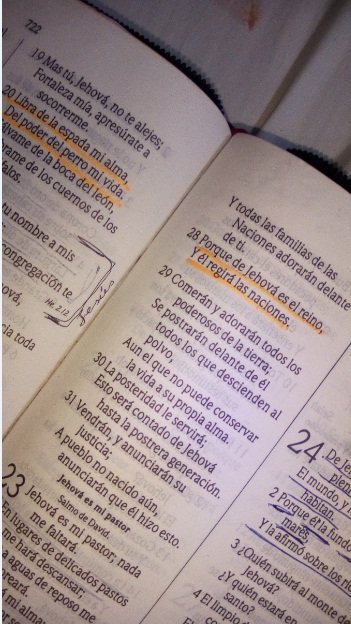 722
19 Mas tú, Jehová, no te alejes;
Fortaleza mía, apresúrate a
socorrerme.
20 Libra de la espada mi alma,
Del poder del perro mi vida.
lvame de la boca del león,
rame de los cuernos de los
falos.
tu nombre a mis
congregación te
He. 2.12
Jesús
ová,
cia toda
Y todas las familias de las
Naciones adorarán delante
de ti.
28 Porque de Jehová es el reino,
Y él regirá las naciones.
29 Comerán y adorarán todos los
poderosos de la tierra;
Se postrarán delante de él
todos los que descienden al
polvo,
Aun el que no puede conservar
la vida a su propia alma.
30 La posteridad le servirá;
Esto será contado de Jehová
hasta la postrera generación.
31 Vendrán, y anunciarán su
justicia;
A pueblo no nacido aún,
anunciarán que él hizo esto.
Jehová es mi pastor
Salmo de David.
23 Jehová es mi pastor; nada
me faltará.
En lugares de delicados pastos
me hará descansar;
a aguas de reposo me
reará.
mi alma
24 De Je
plen
El mundo, y
habitan.
2 Porque él la fund
mares,
Y la afirmó sobre los rí
3 ¿Quién subirá al monte de
Jehová?
¿Y quién estará en
santo?
4 El limpio d